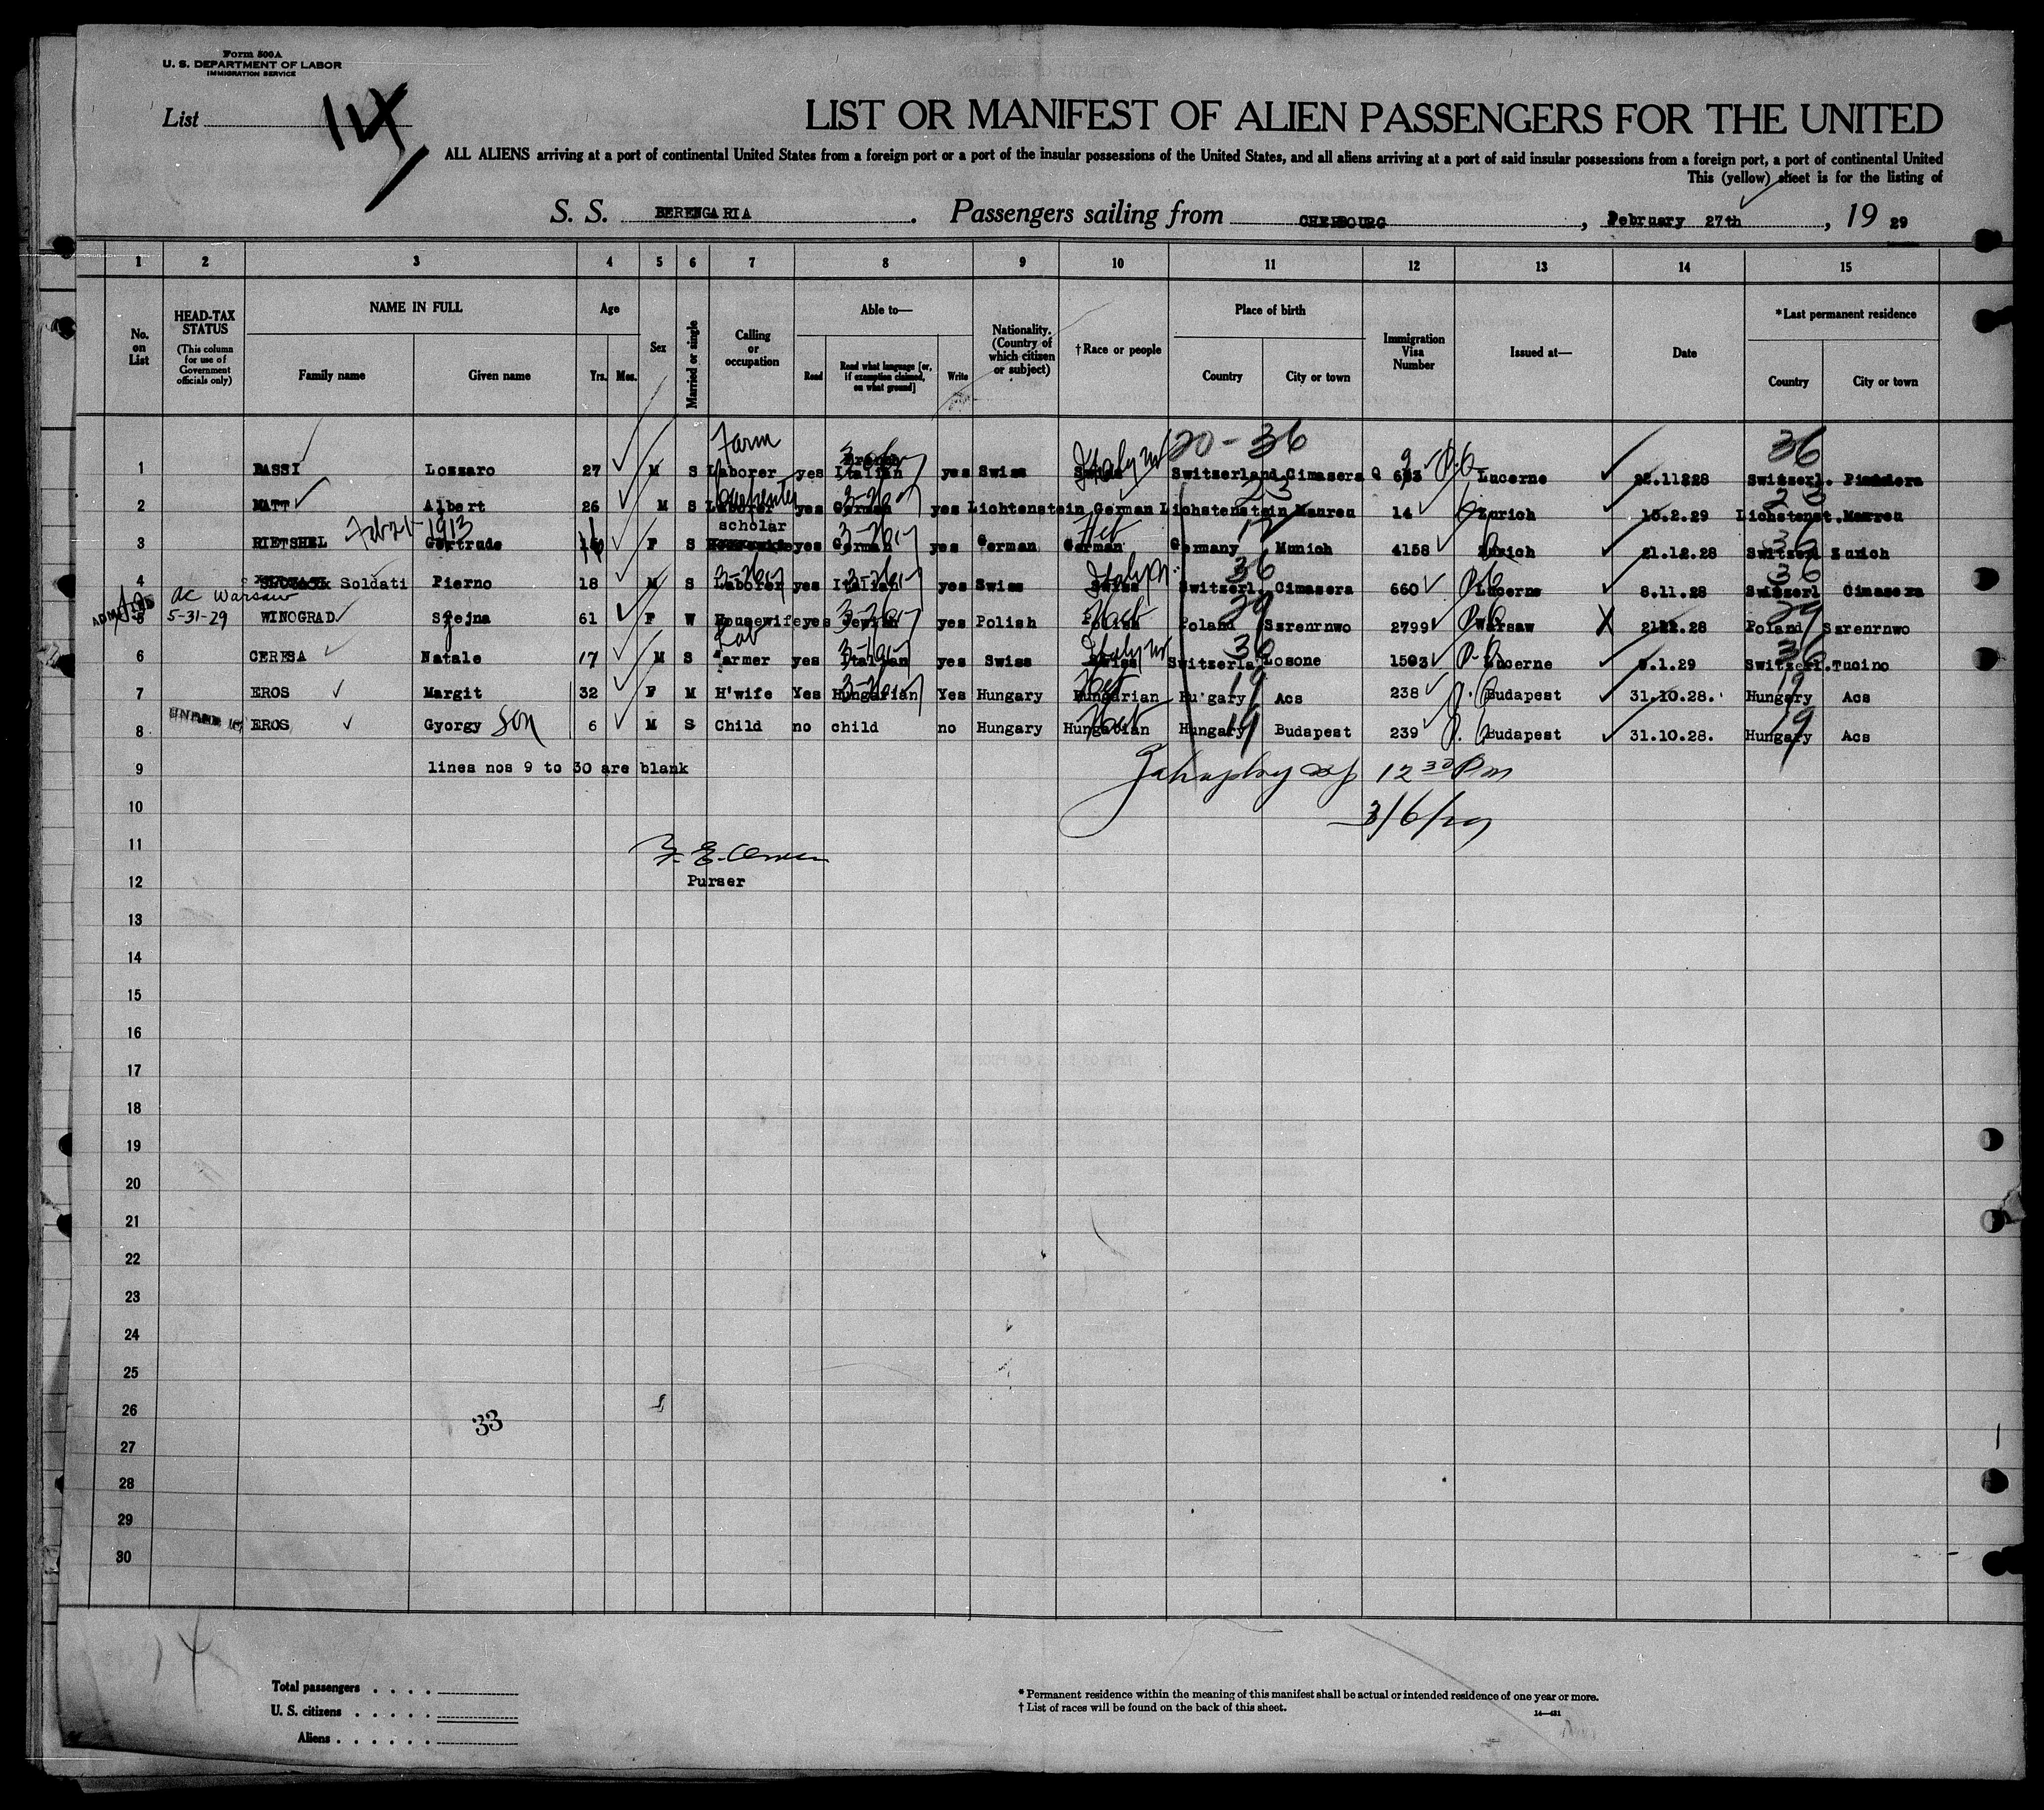 Form 500A
U. S. DEPARTMENT OF LABOR
IMMIGRATION SERVICE
List 14
LIST OR MANIFEST OF ALIEN PASSENGERS FOR THE UNITED
ALL ALIENS arriving at a port of continental United States from a foreign port or a port of the insular possessions of the United States, and all aliens arriving at a port of said insular possessions from a foreign port, a port of continental United
This (yellow) sheet is for the listing of
S. S. BERENGARIA. Passengers sailing from CHERBOURG, February 27th, 19 29
1 2 3 4 5 6 7 8 9 10 11 12 13 14 15
No. on List
HEAD-TAX STATUS (This column for use of Government officials only)
NAME IN FULL Family name Given name
Age Yrs. Mos.
Sex
Married or single
Calling or occupation
Able to— Read Read what language [or, if exemption claimed, on what ground] Write
Nationality. (Country of which citizen or subject)
† Race or people
Place of birth Country City or town
Immigration Visa Number
Issued at—
Date
* Last permanent residence Country City or town
Farm 20 - 36 36
1 BASSI Lozzaro 27 M S Laborer yes Italian yes Swiss Switzerland Cimasera Q Lucerne Switzerl.
Carpenter 23 23
2 MATT Albert 26 M S Laborer yes German yes Lichtenstein German Lichstenstein Maureu 14 Zurich 15.2.29 Lichstenst. Maureu
Feb 21 - 1913 scholar Heb 17 36
3 RIETSHEL Gertrude 16 F S yes German yes German German Germany Munich 4158 Zurich 21.12.28 Switzerl Zurich
36 36
4 Soldati Pierno 18 M S Laborer yes Italian yes Swiss Swiss Switzerl. Cimasera 660 Lucerne 8.11.28 Switzerl Cimasera
ADMITTED ac Warsaw
5 5-31-29 WINOGRAD Szejna 61 F W Housewife yes Jewish yes Polish Polish Poland Szrenrnwo 2799 Warsaw Poland Szrenrnwo
Lab 36 36
6 CERESA Natale 17 M S Farmer yes Italian yes Swiss Swiss Switzerla Losone 1503 Lucerne .1.29 Switzerl. Tucino
7 EROS Margit 32 F M H'wife Yes Hungarian Yes Hungary Hungarian Hu'gary Acs 238 Budapest 31.10.28. Hungary Acs
UNDER 16 8 EROS Gyorgy Son 6 M S Child no child no Hungary Hungarian Hungary Budapest 239 Budapest 31.10.28. Hungary Acs
9 lines nos 9 to 30 are blank 12 30 Pm
10 3/6/29
11
12 Purser
13
14
15
16
17
18
19
20
21
22
23
24
25
26 33
27
28
29
30
14
Total passengers
U. S. citizens
Aliens
* Permanent residence within the meaning of this manifest shall be actual or intended residence of one year or more.
† List of races will be found on the back of this sheet.
14—431